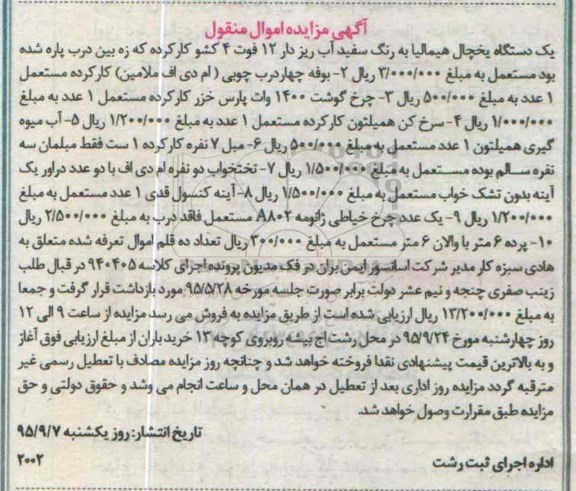 آگهی مزایده اموال منقول
یک دستگاه یخچال هیمالیا به رنگ سفید آب ریز دار ۱۲ فوت ۴ کشو کارکرده که زه بین درب پاره شده
بود مستعمل به مبلغ ۳/۰۰۰/۰۰۰ ریال ۲- بوفه چهاردرب چوبی ( ام دی اف ملامین) کارکرده مستعمل
۱ عدد به مبلغ ۵۰۰/۰۰۰ ریال ۳- چرخ گوشت ۱۴۰۰ وات پارس خزر کارکرده مستعمل ۱ عدد به مبلغ
۱/۰۰۰/۰۰۰ ریال ۴- سرخ کن همیلتون کارکرده مستعمل ۱ عدد به مبلغ ۱/۲۰۰/۰۰۰ ریال ۵- آب میوه
گیری همیلتون ۱ عدد مستعمل به مبلغ ۵۰۰/۰۰۰ ریال ۶- مبل ۷ نفره کارکرده ۱ ست فقط مبلمان سه
نفره سالم بوده مستعمل به مبلغ ۱/۵۰۰/۰۰۰ ریال ۷- تختخواب دو نفره ام دی اف با دو عدد دراور یک
آینه بدون تشک خواب مستعمل به مبلغ ۱/۵۰۰/۰۰۰ ریال ۸- آینه کنسول قدی ۱ عدد مستعمل به مبلغ
۱/۲۰۰/۰۰۰ ریال ۹- یک عدد چرخ خیاطی ژانومه A۸۰۲ مستعمل فاقد درب به مبلغ ۲/۵۰۰/۰۰۰ ریال
۱۰- پرده ۶ متر با والان ۶ متر مستعمل به مبلغ ۳۰۰/۰۰۰ ریال تعداد ده قلم اموال تعرفه شده متعلق به
هادی سبزه کار مدیر شرکت آسانسور ایمن بران در فک مدیون پرونده اجرای کلاسه ۹۴۰۴۰۵ در قبال طلب
زینب صفری چنجه و نیم عشر دولت برابر صورت جلسه مورخه ۹۵/۵/۲۸ مورد بازداشت قرار گرفت و جمعا
به مبلغ ۱۳/۲۰۰/۰۰۰ ریال ارزیابی شده است از طریق مزایده به فروش می رسد مزایده از ساعت ۹ الی ۱۲
روز چهارشنبه مورخ ۹۵/۹/۲۴ در محل رشت آج بیشه روبروی کوچه ۱۳ خریداران از مبلغ ارزیابی فوق آغاز
و به بالاترین قیمت پیشنهادی نقدا فروخته خواهد شد و چنانچه روز مزایده مصادف با تعطیل رسمی غیر
مترقبه گردد مزایده روز اداری بعد از تعطیل در همان محل و ساعت انجام می وشد و حقوق دولتی و حق
مزایده طبق مقرارت وصول خواهد شد.
تاریخ انتشار: روز یکشنبه ۹۵/۹/۷
اداره اجرای ثبت رشت ۲۰۰۲